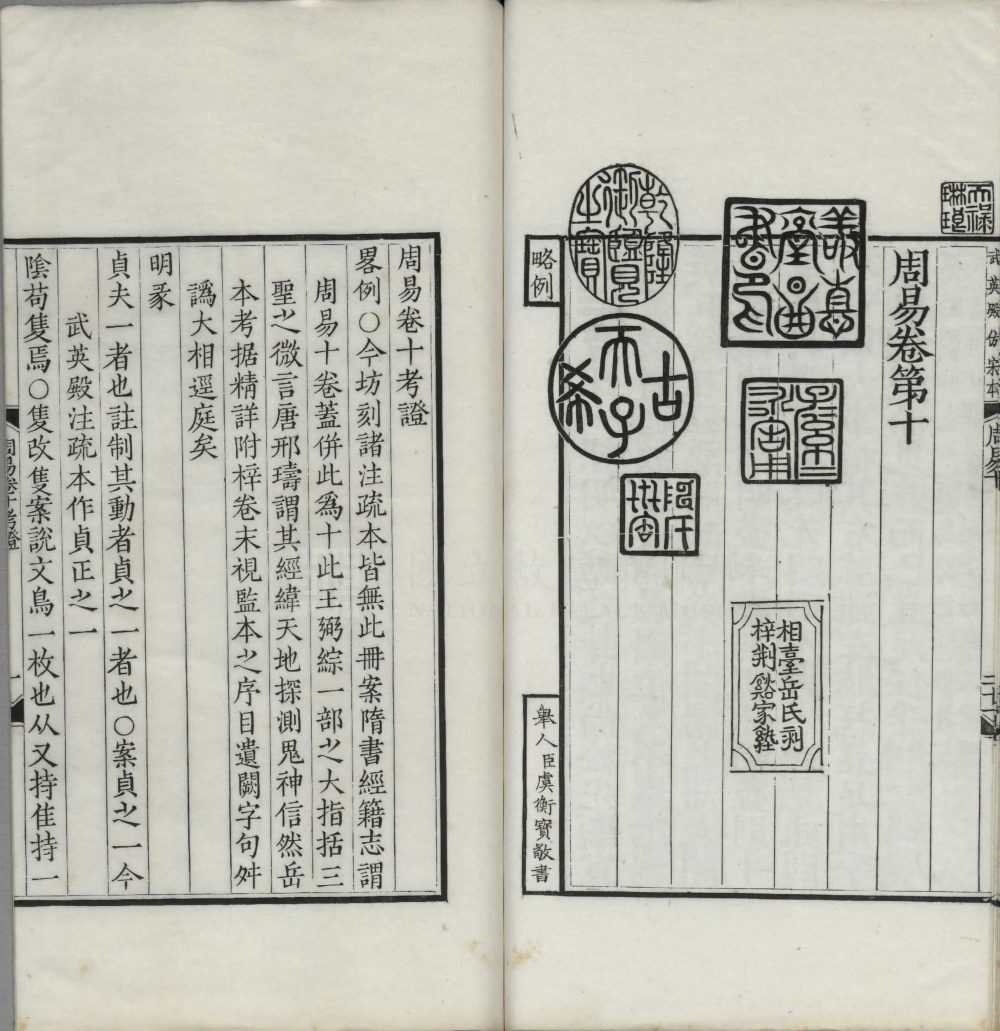 天祿
琳琅
武英殿仿宋本
周易
周易卷第十
乾隆
御覽
之寶
古
天子
希
相臺岳氏刻
梓荆谿家塾
略例
舉人臣虞衡寶敬書
周易卷十考證
畧例〇今坊刻諸注疏本皆無此冊案隋書經籍志謂
周易十卷蓋併此爲十此王弼綜一部之大指括三
聖之微言唐邢璹謂其經緯天地探測鬼神信然岳
本考据精詳附梓卷末視監本之序目遺闕字句舛
譌大相逕庭矣
明彖
貞夫一者也註制其動者貞之一者也〇案貞之一今
武英殿注疏本作貞正之一
陰苟隻焉〇隻改隻案說文鳥一枚也从又持隹持一
周易卷十考證
一